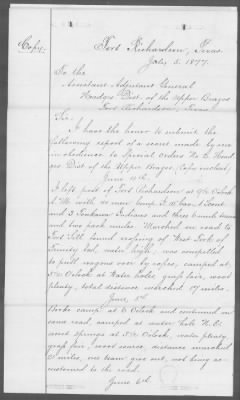 Copy.
Fort Richardson, Texas.
July 5. 1877.
To the
Assistant Adjutant General
Headqrs Dist. of the Upper Brazos
Fort Richardson, Texas
Sir:
I have the honor to submit the
following report of a scout made by me
in obedience to Special Orders No 6 Head
qrs Dist of the Upper Brazos, (Copy enclosed)
June 4th.
I left post of Fort Richardson at 9 1/2 O'clock
A M. with 40 men Comp.
and 3 Tonkawa Indians and three 6 mule teams
and two pack mules Marched on road to
Fort Sill found crossing of West Fork of
Trinity bad, water high, was compelled
to pull wagons over by ropes, camped at
O'clock at Water holes, grass fair, wood
plenty, total distance marched 17 miles.
June 5th
Broke camp at 6 O'clock and continued on
same road, camped at water hole N. E.
springs at O'clock, water plenty,
grass fair, wood scarce, distance marched
miles, one team give out, not being ac
customed to the road.
June 6th